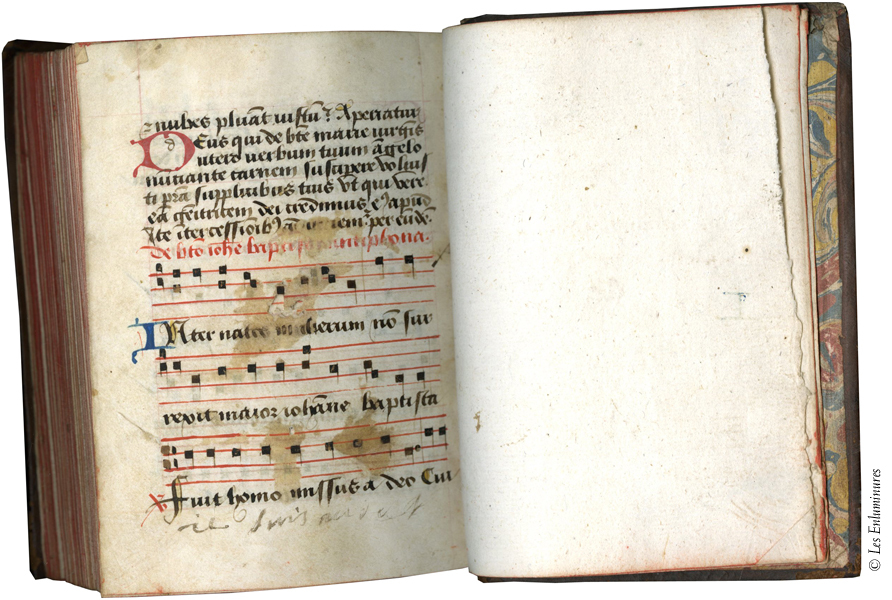 nubes pluāt iustū ℣ Aperiatur
DEus qui de bte marie uirgīs
utero uerbum tuum āgelo
nuciante carnem suscipere uoluis
ti pr̄a supplicibus tuis ut qui uere
eā genitricem dei credimus eꝰ apud
te ītercessionibꝰ per eūdē
de btō iohē baptista antiphona.
INter natos mulierum nō sur
rexit maior iohāne baptista
Fuit homo missus a deo Cui
© Les Enluminures